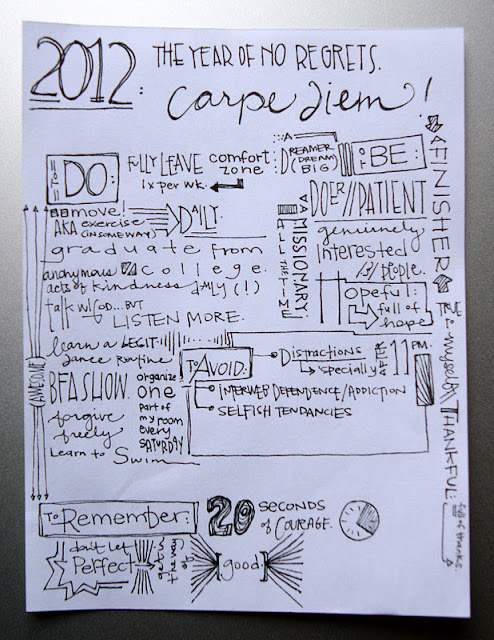 2012: THE YEAR OF NO REGRETS.
carpe diem!
TO DO:
FULLY LEAVE comfort zone
1x per wk.
move!
AKA exercise
(IN SOME WAY)
DAILY.
graduate from
college.
anonymous
acts of kindness DAILY(!)
talk w/GOD...BUT
LISTEN MORE.
learn a LEGIT
dance routine
AWESOME
BFA SHOW.
forgive
freely
Learn to Swim
organize
one
part of
my room
every
SATURDAY
TO BE:
A
DREAMER
(DREAM
BIG)
DOER//PATIENT
A MISSIONARY
ALL THE TIME
genuinely
Interested
IN people.
HOPEFUL:
full of
hope
A FINISHER
TRUE 2 myself
THANKFUL:
full of thanks.
TO AVOID:
DISTRACTIONS
'specially AFTER 11 PM.
INTERWEB DEPENDENCE/ADDICTION
SELFISH TENDANCIES
TO Remember:
20 SECONDS
of COURAGE.
don't let
Perfect
get in
the way
of
good.